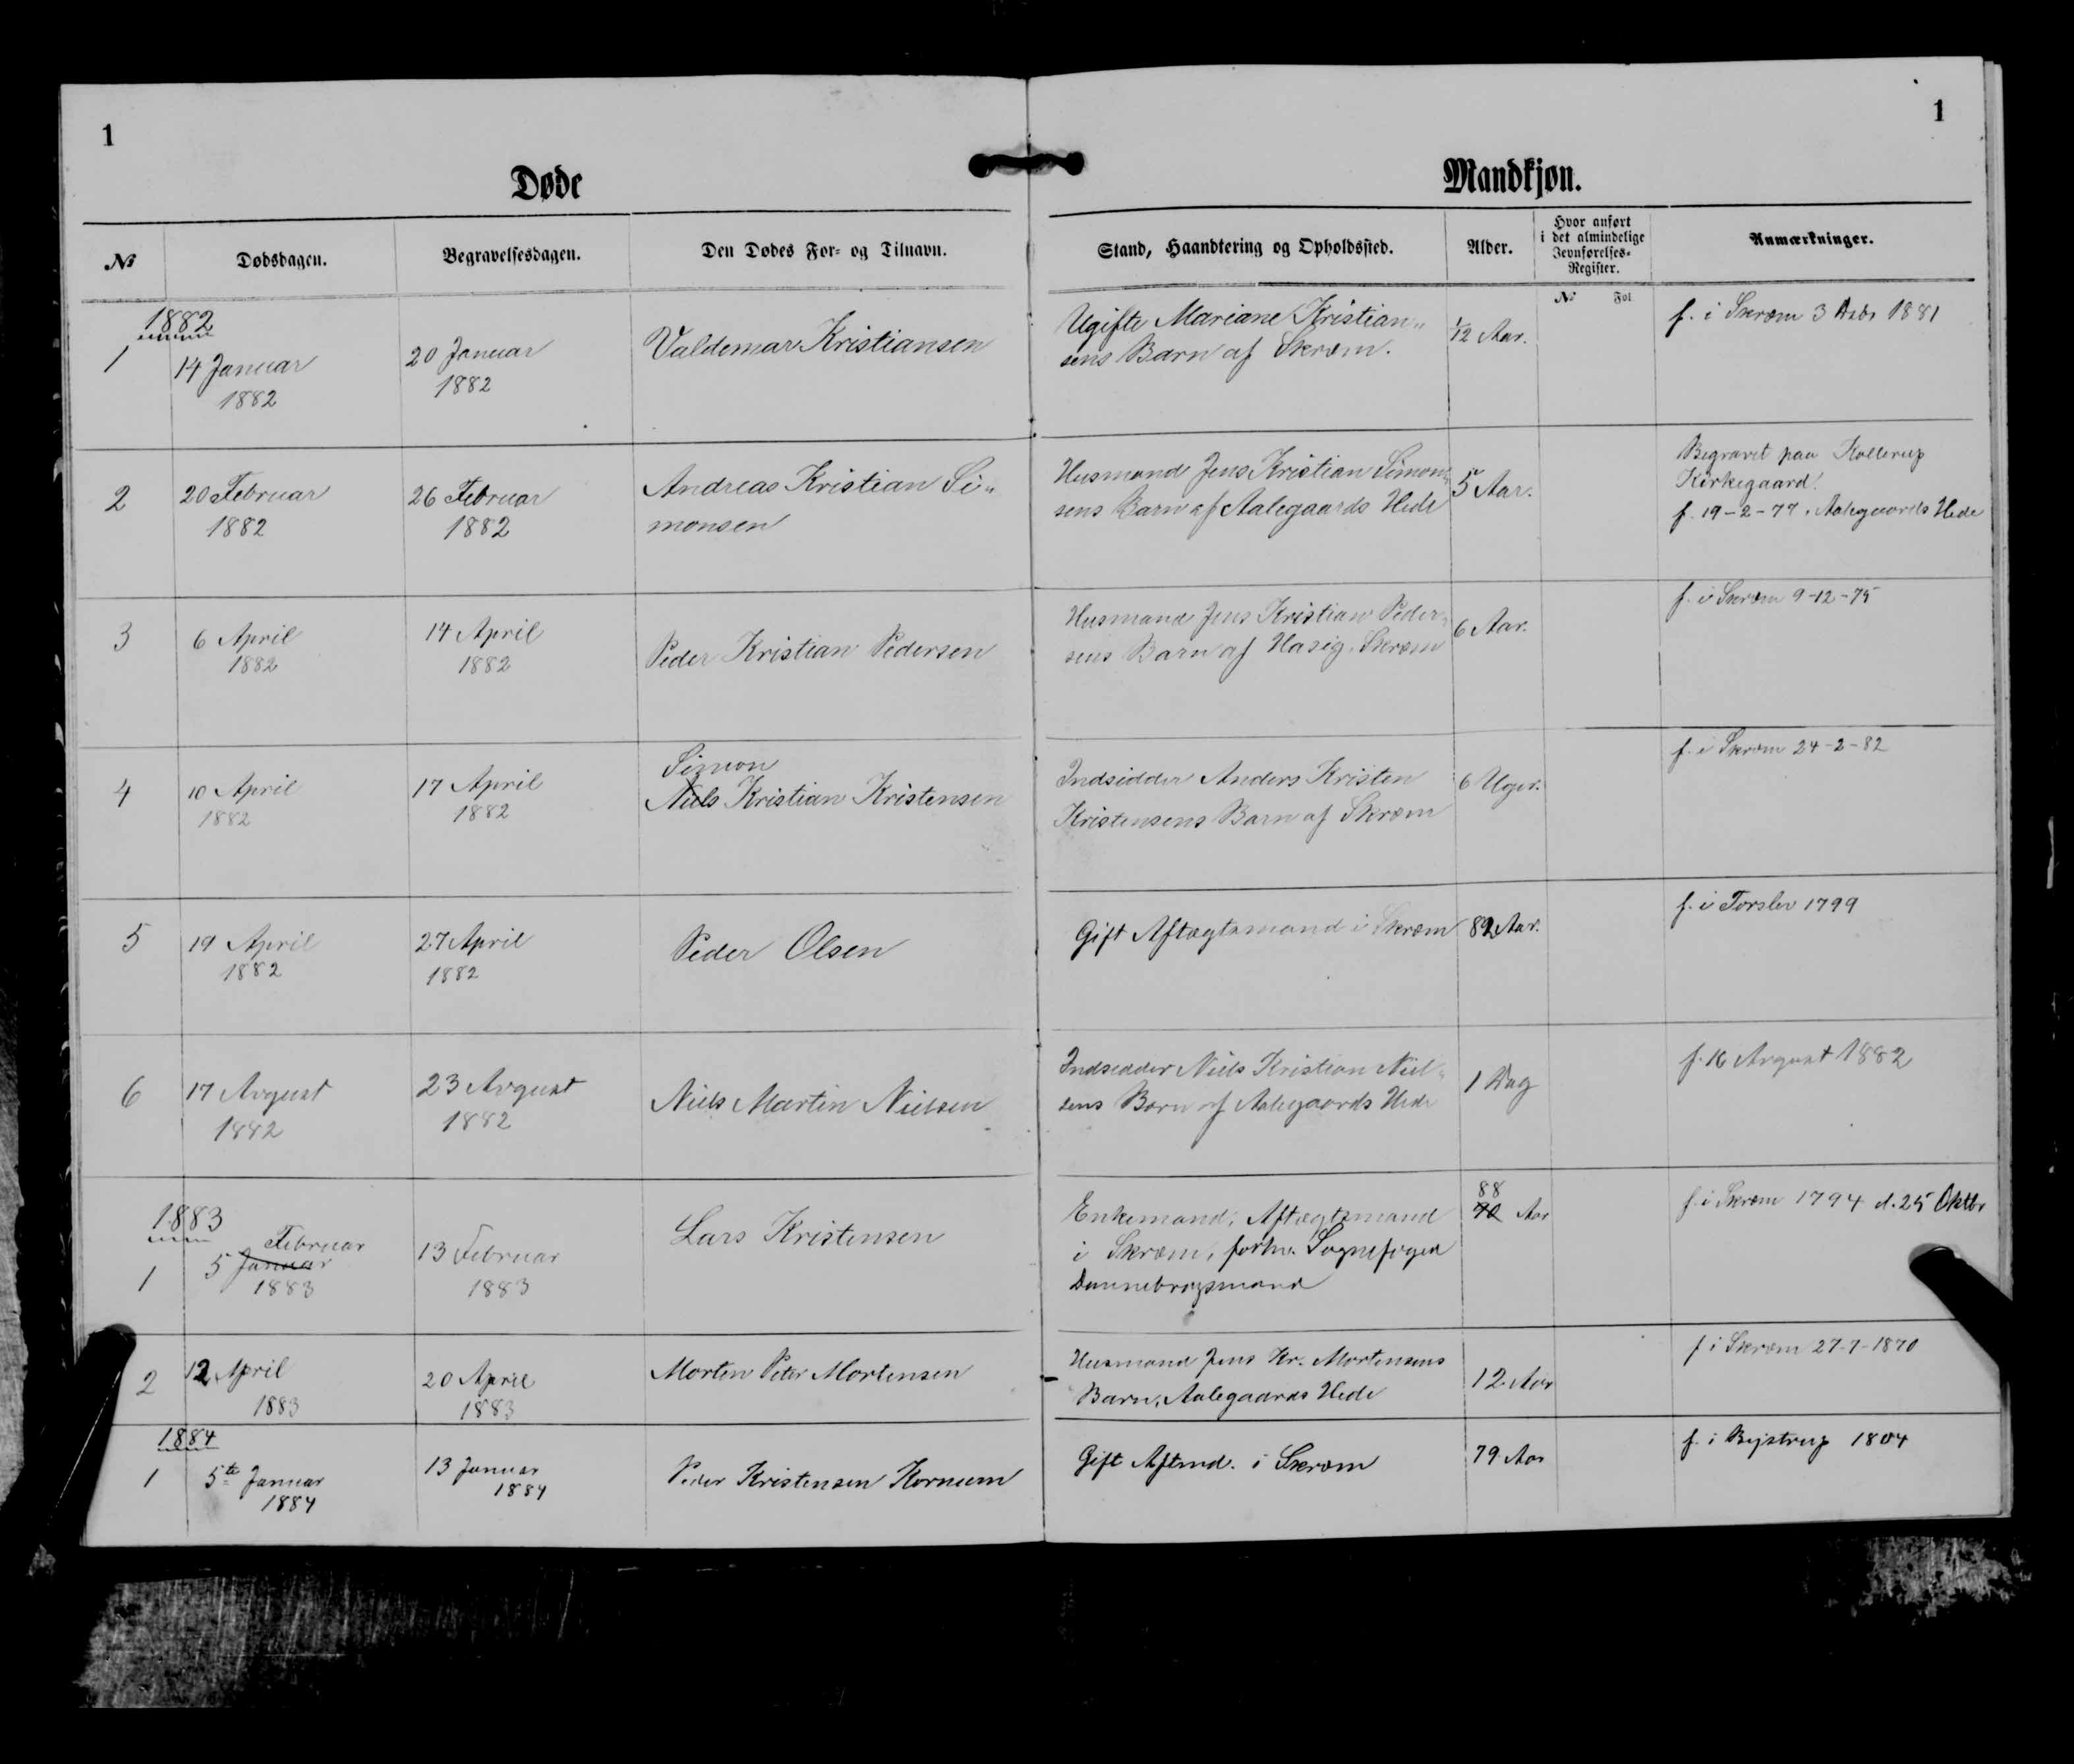 1
1
Døde
Mandkjøn.
№
Dødsdagen.
Begravelsesdagen.
Den Dødes For- og Tilnavn.
Stand, Haandtering og Opholdssted.
Alder.
Hvor anført
i det almindelige
Jevnførelses-
Register.
Anmærkninger.
№ Fol
1882
1
14 Januar
1882
20 Januar
1882
Valdemar Kristiansen
Ugifte Mariane Kristian„
sens Barn af Skræm.
1/12 Aar.
f. i Skræm 3 Dcbr 1881
2
20 Februar
1882
26 Februar
1882
Andreas Kristian Si„
monsen
Husmand Jens Kristian Simon„
sens Barn af Aalegaards Hede
5 Aar.
Begravet paa Kollerup
Kirkegaard.
f. 19-2-77. Aalegaards Hede
3
6 April
1882
14 April
1882
Peder Kristian Pedersen
Husmand Jens Kristian Peder„
sens Barn af Hasig, Skræm
6 Aar.
f. i Skræm 9-12-75
4
10 April
1882
17 April
1882
Simon
Niels Kristian Kristensen
Indsidder Anders Kristen
Kristensens Barn af Skræm
6 Uger.
f. i Skræm 24-2-82
5
19 April
1882
27 April
1882
Peder Olsen
Gift Aftægtsmand i Skræm
82 Aar.
f. i Torslev 1799
6
17 Avgust
1882
23 Avgust
1882
Niels Martin Nielsen
Indsidder Niels Kristian Niel„
sens Barn af Aalegaards Hede
1 Dag
f. 16 Avgust 1882
1883
1
Februar
5 Januar
1883
13 Februar
1883
Lars Kristensen
Enkemand, Aftægtsmand
i Skræm, forhv. Sognefoged
Dannebrogsmand
88
90 Aar
f. i Skræm 1794 d. 25 Oktbr
2
12 April
1883
20 April
1883
Morten Peter Mortensen
Husmand Jens Kr. Mortensens
Barn, Aalegaards Hede
12 Aar
f i Skræm 27-7-1870
1884
1
5te Januar
1884
13 Januar
1884
Peder Kristensen Kornum
Gift Aftmd. i Skræm
79 Aar
f. i Bejstrup 1804